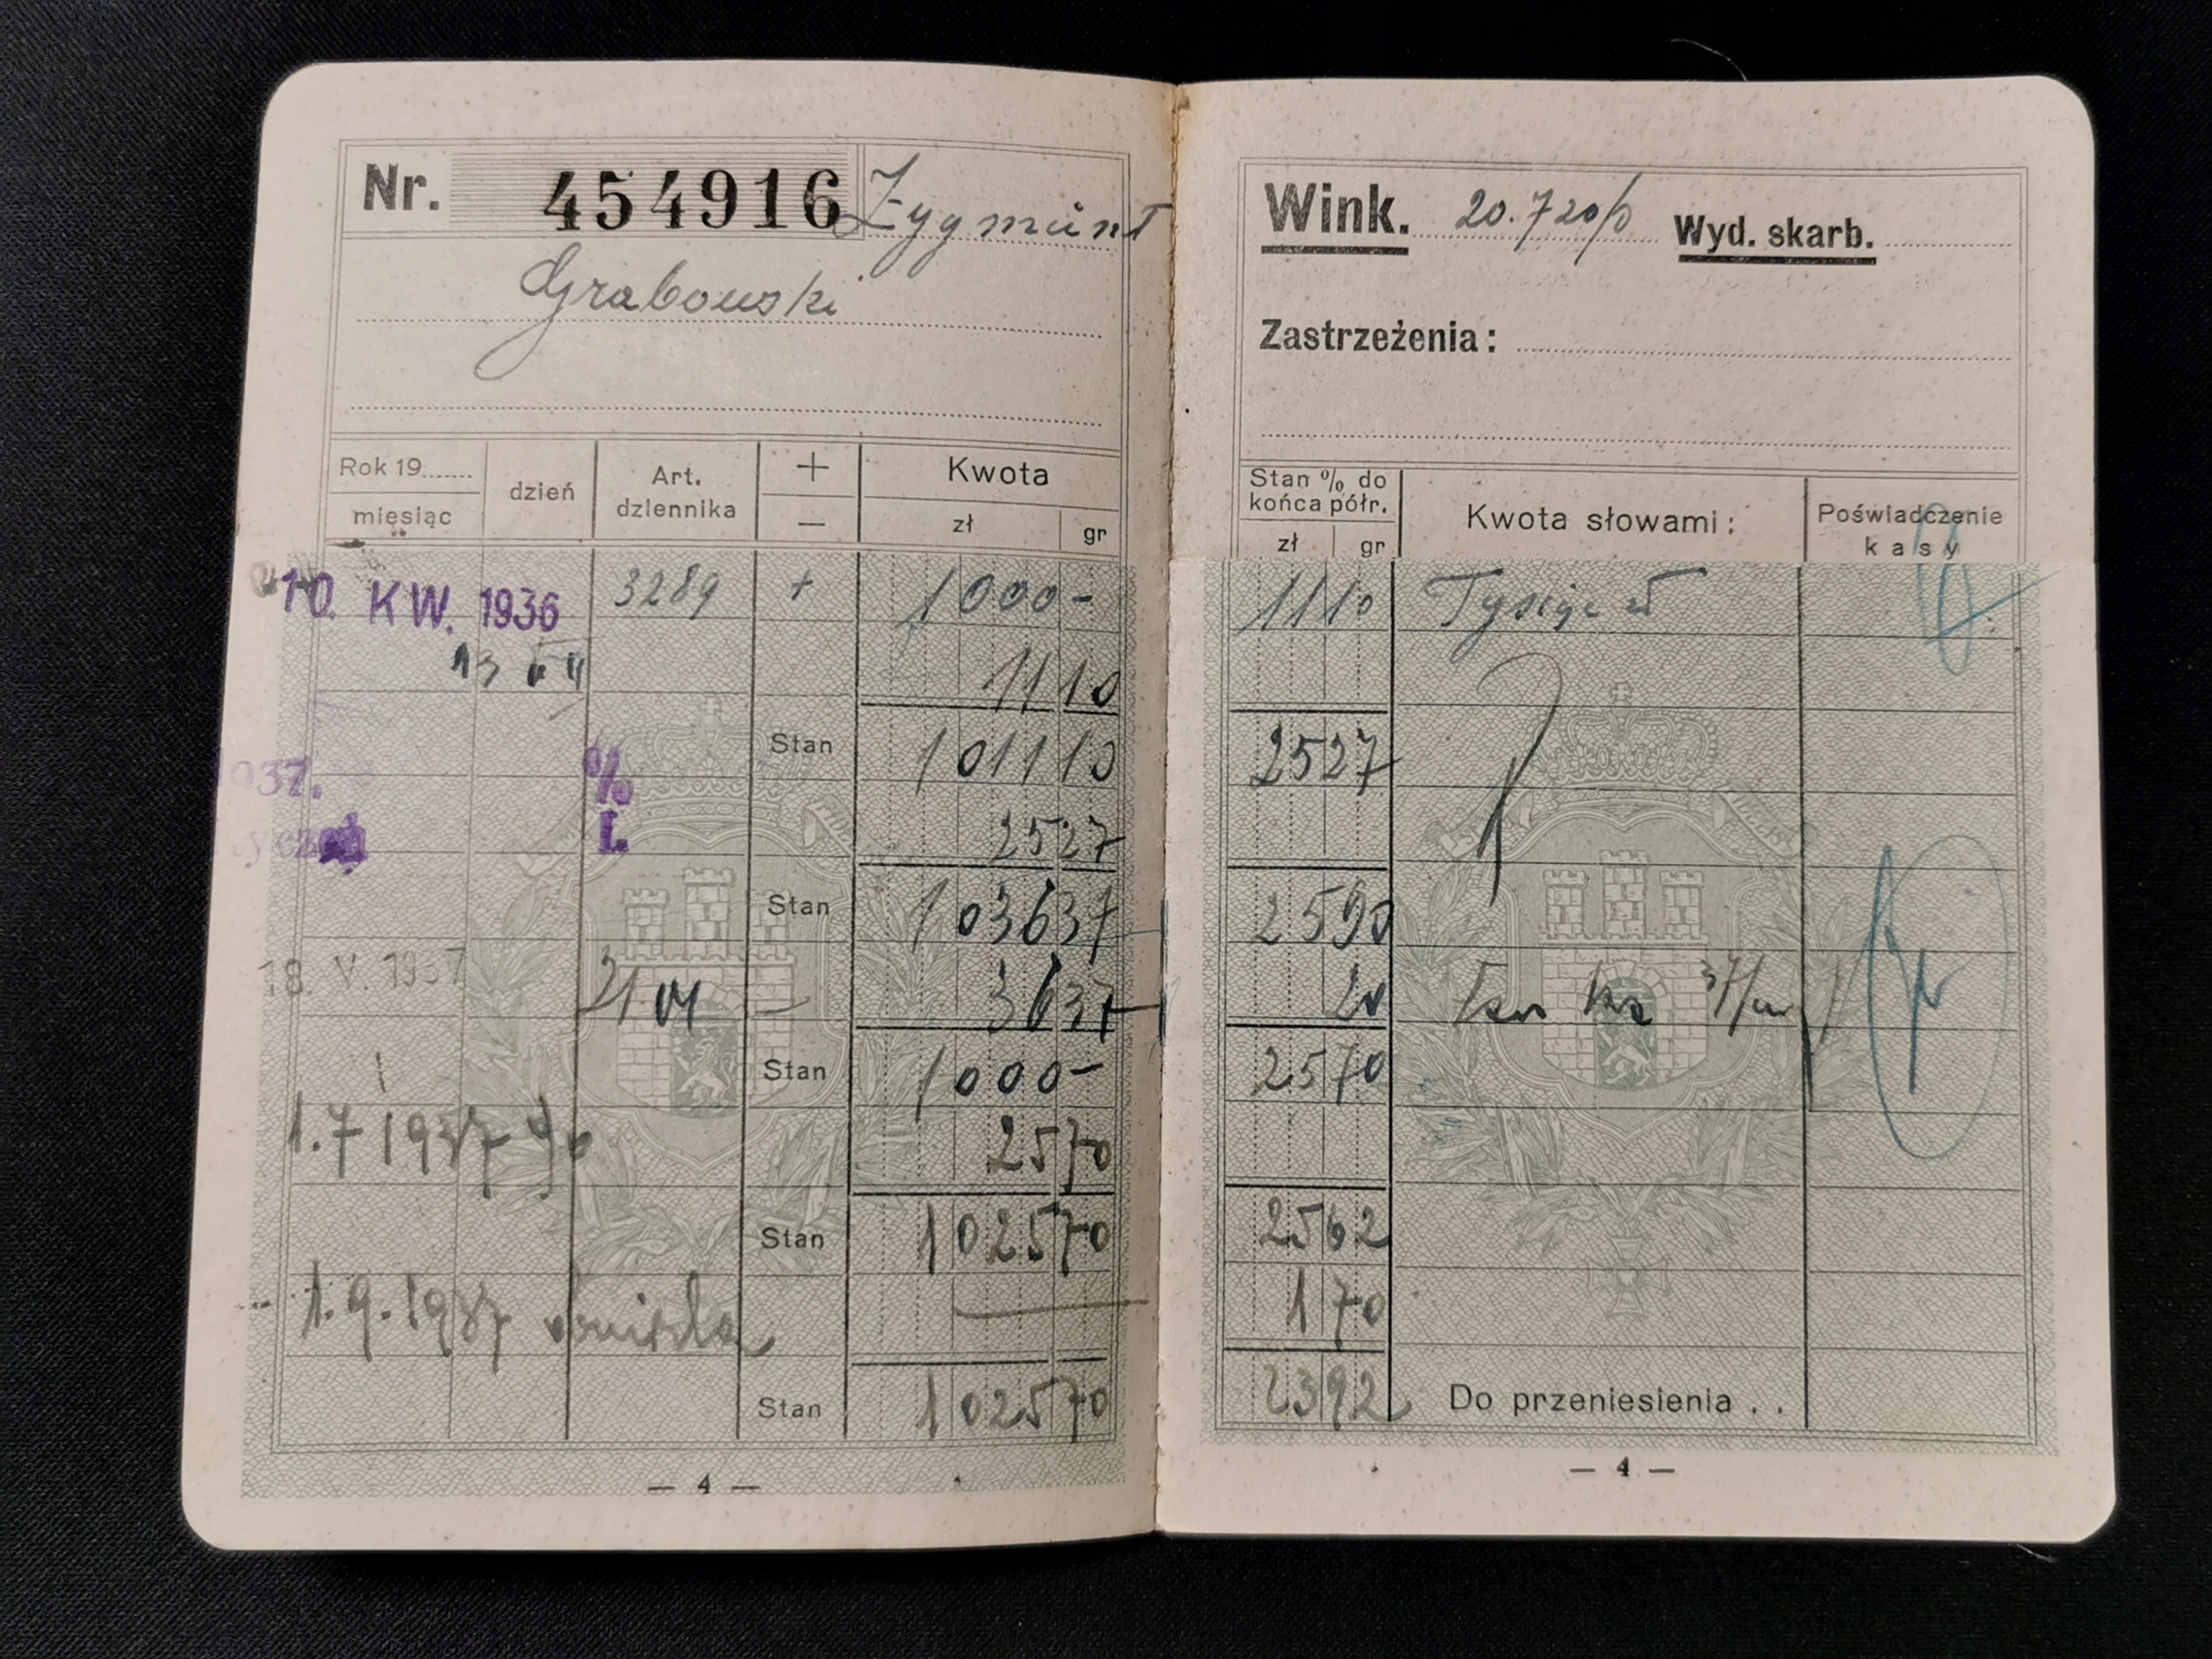 Nr. 454916 Zygmunt
Grabowski
Rok 19........
miesiąc
dzień
Art. dziennika
+
—
Kwota
zł gr
10. KW. 1936 3289 + 1000-
13 VII 11 10
Stan 1011 10
937. % 
I. 25 27
Stan 1036 37
18. V. 1937 — 36 37
Stan 1000-
1.7 1937 % 25 70
Stan 1025 70
1.9.1937
Stan 1025 70
— 4 —
Wink. Wyd. skarb.
Zastrzeżenia:
Stan % do
końca półr.
zł gr
Kwota słowami:
Poświadczenie
kasy
11 10 Tysiąc zł
25 27
25 90
20
25 70
25 62
1 70
23 92 Do przeniesienia . .
— 4 —